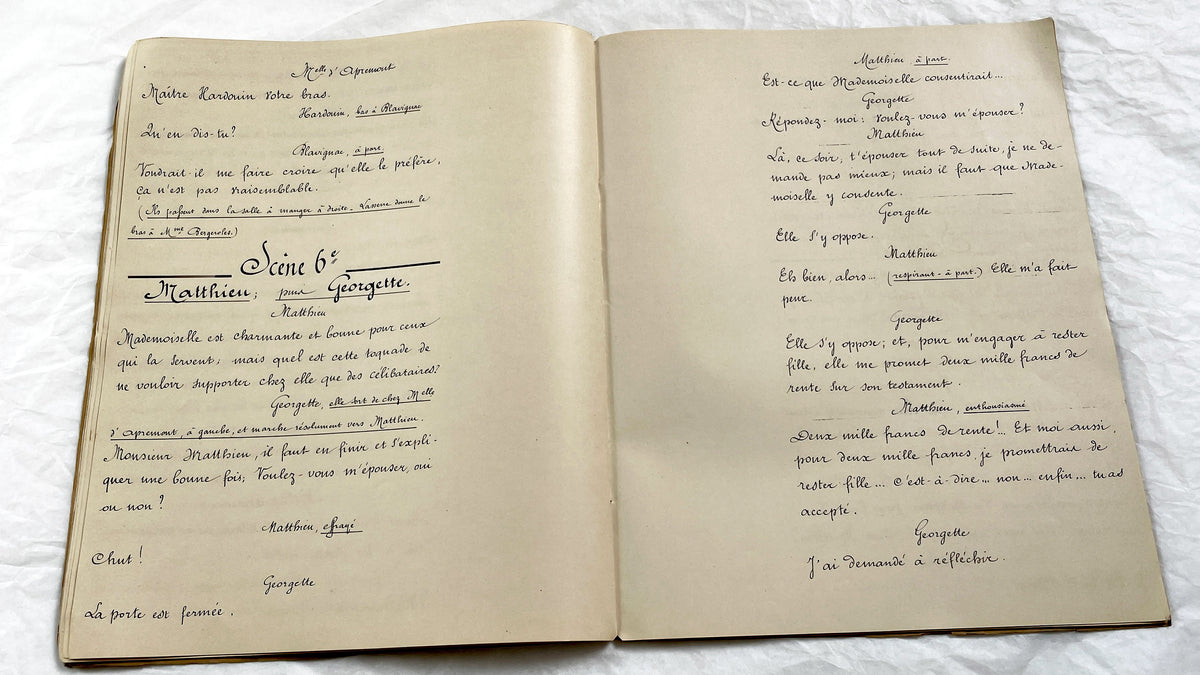 Melle d'Apremont
Maître Hardouin votre bras.
Hardouin, bas à Blavignac
Qu'en dis-tu?
Blavignac, à part.
Voudrait-il me faire croire qu'elle le préfère,
ça n'est pas vraisemblable.
(Ils passent dans la salle à manger à droite. Lasserre donne le
bras à Mme Bergerolles.)
Scène 6e
Matthieu, puis Georgette.
Matthieu
Mademoiselle est charmante et bonne pour ceux
qui la servent; mais quel est cette toquade de
ne vouloir supporter chez elle que des célibataires?
Georgette, elle sort de chez Melle
d'Apremont, à gauche, et marche résolument vers Matthieu.
Monsieur Matthieu, il faut en finir et s'expli-
quer une bonne fois; Voulez-vous m'épouser, oui
ou non?
Matthieu, effrayé
Chut!
Georgette
La porte est fermée.
Matthieu, à part.
Est-ce que Mademoiselle consentirait...
Georgette
Répondez-moi: voulez-vous m'épouser?
Matthieu
Là, ce soir, t'épouser tout de suite, je ne de-
mande pas mieux; mais il faut que Made-
moiselle y consente.
Georgette
Elle s'y oppose.
Matthieu
Eh bien, alors... (respirant - à part.) Elle m'a fait
peur.
Georgette
Elle s'y oppose; et, pour m'engager à rester
fille, elle me promet deux mille francs de
rente sur son testament.
Matthieu, enthousiasmé
Deux mille francs de rente!.. Et moi aussi,
pour deux mille francs, je promettrais de
rester fille... c'est-à-dire... non... enfin... tu as
accepté.
Georgette
J'ai demandé à réfléchir.